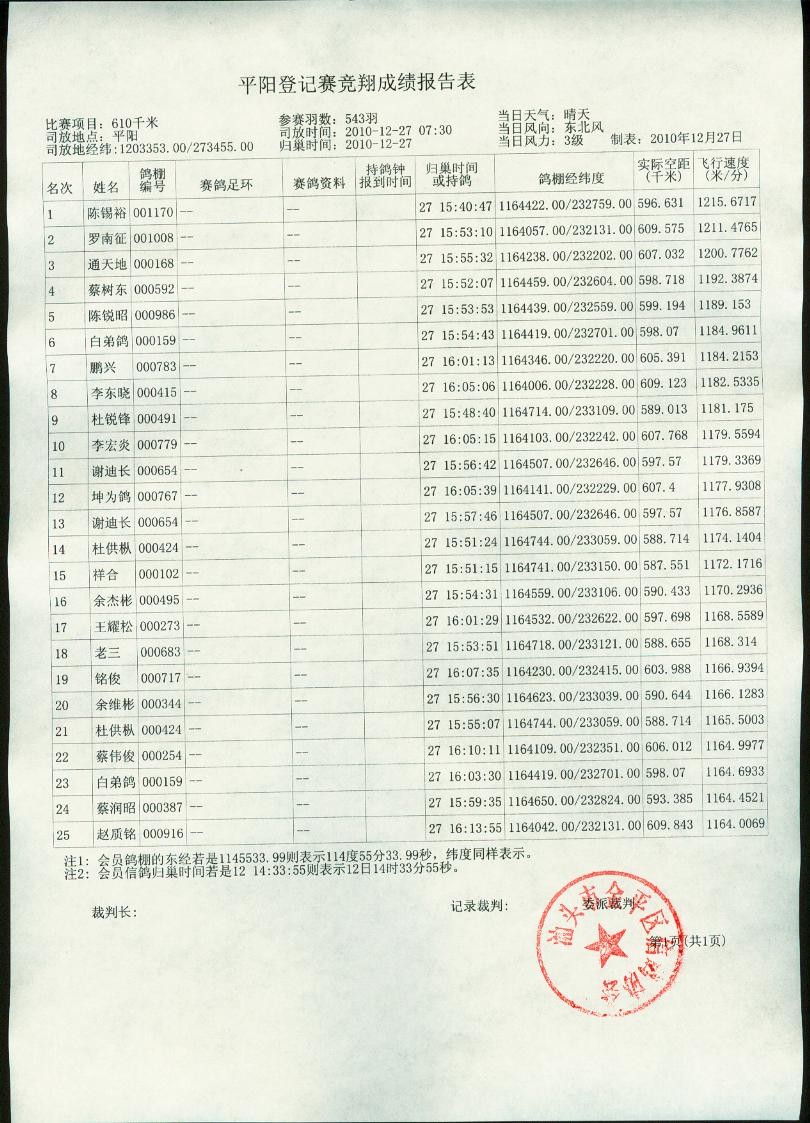 平阳登记赛竞翔成绩报告表
比赛项目: 610千米 参赛羽数: 543羽 当日天气: 晴天
司放地点: 平阳 司放时间: 2010-12-27 07:30 当日风向: 东北风
司放地经纬:1203353.00/273455.00 归巢时间: 2010-12-27 当日风力: 3级 制表: 2010年12月27日
名次 姓名 鸽棚编号 赛鸽足环 赛鸽资料 持鸽钟报到时间 归巢时间或持鸽 鸽棚经纬度 实际空距(千米) 飞行速度(米/分)
1 陈锡裕 001170 -- -- 27 15:40:47 1164422.00/232759.00 596.631 1215.6717
2 罗南征 001008 -- -- 27 15:53:10 1164057.00/232131.00 609.575 1211.4765
3 通天地 000168 -- -- 27 15:55:32 1164238.00/232202.00 607.032 1200.7762
4 蔡树东 000592 -- -- 27 15:52:07 1164459.00/232604.00 598.718 1192.3874
5 陈锐昭 000986 -- -- 27 15:53:53 1164439.00/232559.00 599.194 1189.153
6 白弟鸽 000159 -- -- 27 15:54:43 1164419.00/232701.00 598.07 1184.9611
7 鹏兴 000783 -- -- 27 16:01:13 1164346.00/232220.00 605.391 1184.2153
8 李东晓 000415 -- -- 27 16:05:06 1164006.00/232228.00 609.123 1182.5335
9 杜锐锋 000491 -- -- 27 15:48:40 1164714.00/233109.00 589.013 1181.175
10 李宏炎 000779 -- -- 27 16:05:15 1164103.00/232242.00 607.768 1179.5594
11 谢迪长 000654 -- -- 27 15:56:42 1164507.00/232646.00 597.57 1179.3369
12 坤为鸽 000767 -- -- 27 16:05:39 1164141.00/232229.00 607.4 1177.9308
13 谢迪长 000654 -- -- 27 15:57:46 1164507.00/232646.00 597.57 1176.8587
14 杜供枞 000424 -- -- 27 15:51:24 1164744.00/233059.00 588.714 1174.1404
15 祥合 000102 -- -- 27 15:51:15 1164741.00/233150.00 587.551 1172.1716
16 余杰彬 000495 -- -- 27 15:54:31 1164559.00/233106.00 590.433 1170.2936
17 王耀松 000273 -- -- 27 16:01:29 1164532.00/232622.00 597.698 1168.5589
18 老三 000683 -- -- 27 15:53:51 1164718.00/233121.00 588.655 1168.314
19 铭俊 000717 -- -- 27 16:07:35 1164230.00/232415.00 603.988 1166.9394
20 余维彬 000344 -- -- 27 15:56:30 1164623.00/233039.00 590.644 1166.1283
21 杜供枞 000424 -- -- 27 15:55:07 1164744.00/233059.00 588.714 1165.5003
22 蔡伟俊 000254 -- -- 27 16:10:11 1164109.00/232351.00 606.012 1164.9977
23 白弟鸽 000159 -- -- 27 16:03:30 1164419.00/232701.00 598.07 1164.6933
24 蔡润昭 000387 -- -- 27 15:59:35 1164650.00/232824.00 593.385 1164.4521
25 赵质铭 000916 -- -- 27 16:13:55 1164042.00/232131.00 609.843 1164.0069
注1: 会员鸽棚的东经若是1145533.99则表示114度55分33.99秒，纬度同样表示。
注2: 会员信鸽归巢时间若是12 14:33:55则表示12日14时33分55秒。
裁判长: 记录裁判: 委派裁判:
第1页(共1页)
汕头市金平区信鸽协会